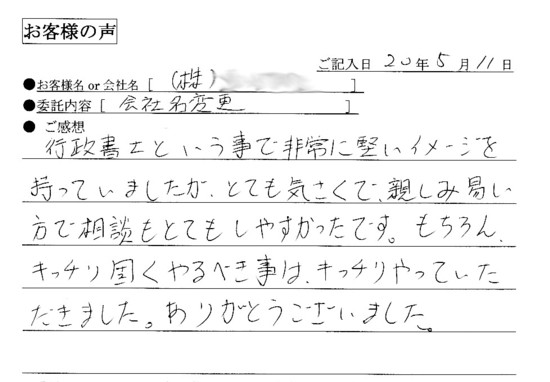 お客様の声
ご記入日 20年5月11日
●お客様名 or 会社名 [ (株) ]
●委託内容 [ 会社名変更 ]
● ご感想
行政書士という事で非常に堅いイメージを
持っていましたが、とても気さくで、親しみ易い
方で相談もとてもしやすかったです。もちろん、
キッチリ固くやるべき事は、キッチリやっていた
だきました。ありがとうございました。